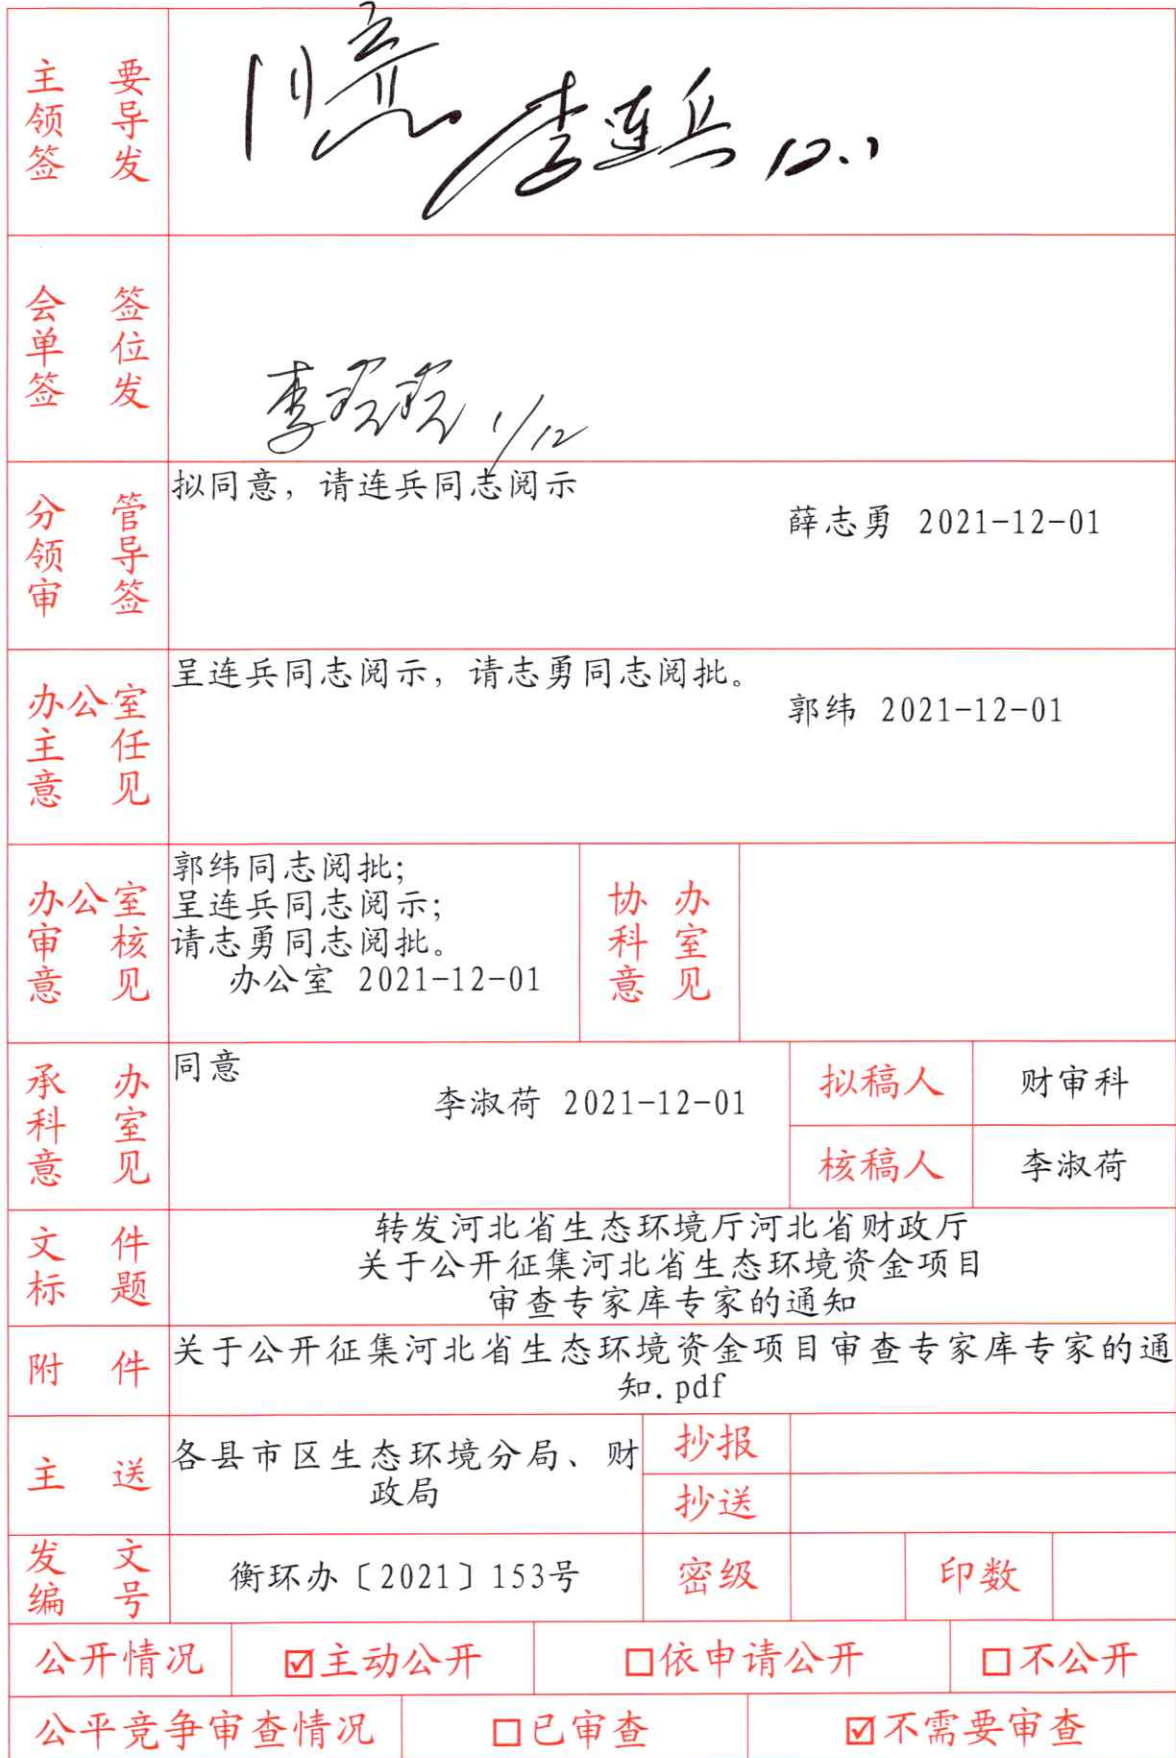 主要
领导
签发
同意 李连兵 12.1
会签
单位
签发
李 1/12
分管
领导
审签
拟同意，请连兵同志阅示
薛志勇 2021-12-01
办公室
主任
意见
呈连兵同志阅示，请志勇同志阅批。
郭纬 2021-12-01
办公室
审核
意见
郭纬同志阅批；
呈连兵同志阅示；
请志勇同志阅批。
办公室 2021-12-01
协办
科室
意见
承办
科室
意见
同意
李淑荷 2021-12-01
拟稿人
财审科
核稿人
李淑荷
文件
标题
转发河北省生态环境厅河北省财政厅
关于公开征集河北省生态环境资金项目
审查专家库专家的通知
附件
关于公开征集河北省生态环境资金项目审查专家库专家的通
知.pdf
主送
各县市区生态环境分局、财
政局
抄报
抄送
发文
编号
衡环办〔2021〕153号
密级
印数
公开情况
☑主动公开
□依申请公开
□不公开
公平竞争审查情况
□已审查
☑不需要审查